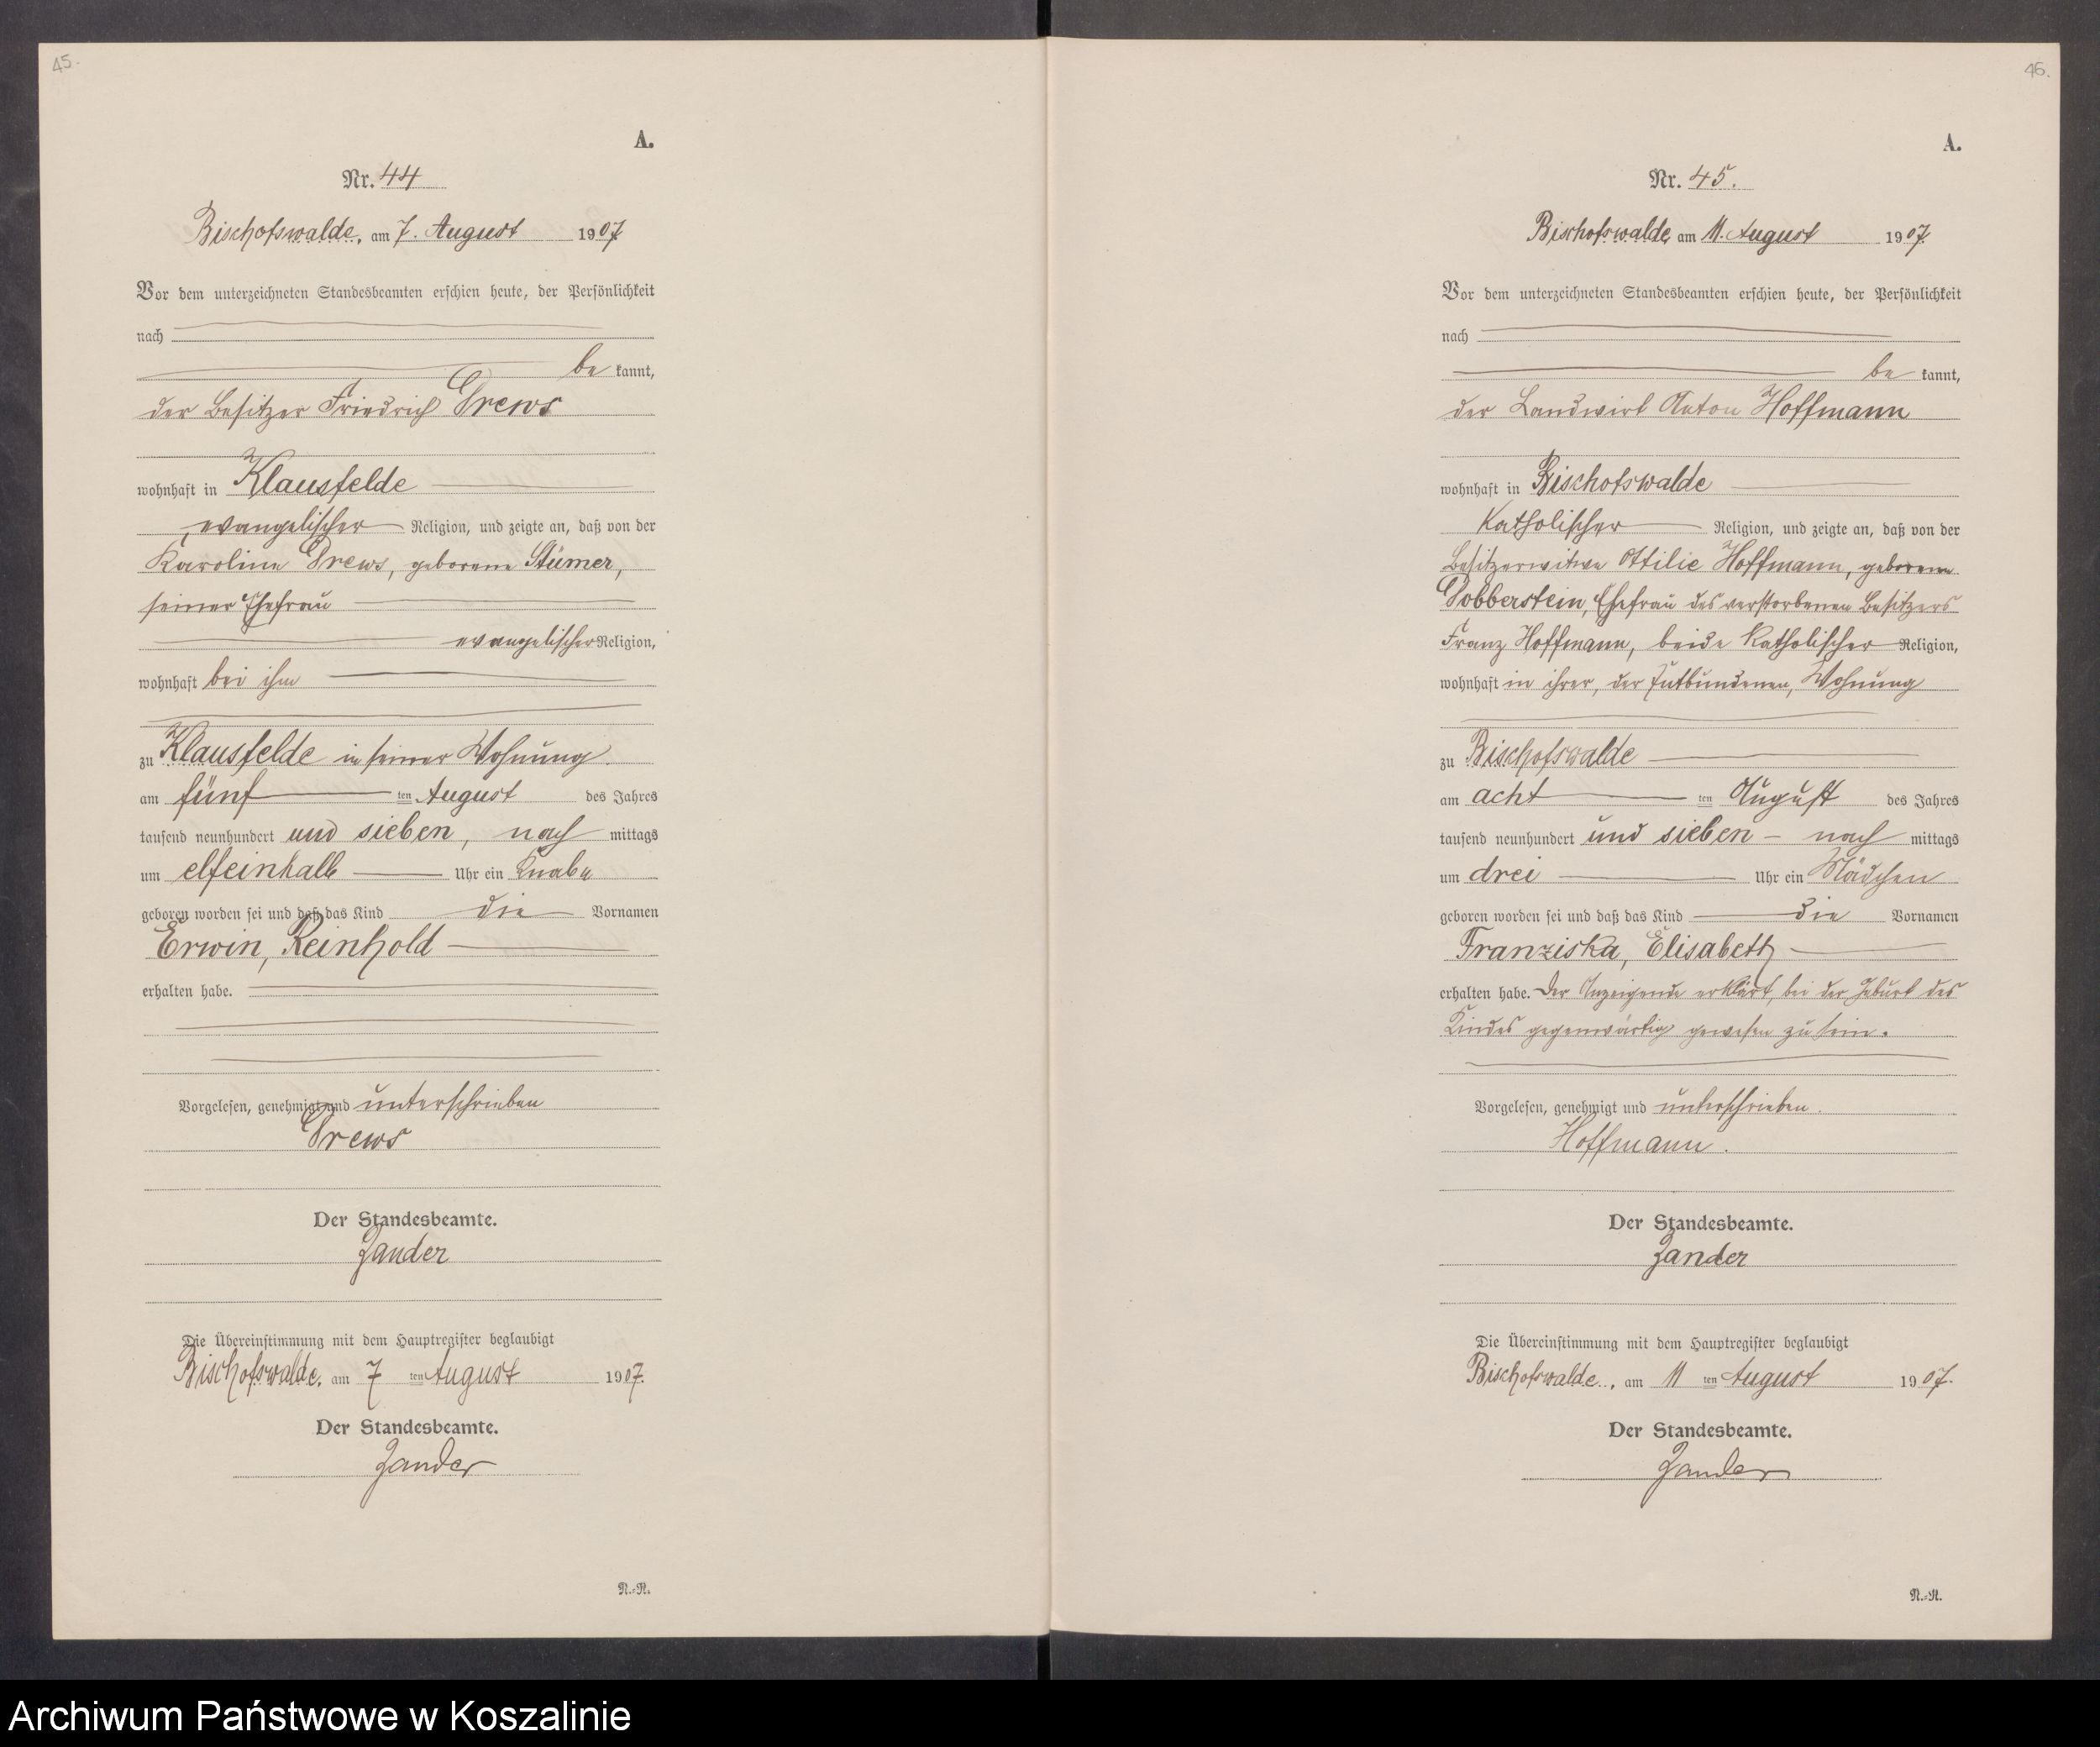 45.
A.
Nr. 44
Bischofswalde, am 7. August 1907
Vor dem unterzeichneten Standesbeamten erschien heute, der Persönlichkeit
nach
be kannt,
der Besitzer Friedrich Drews
wohnhaft in Klausfelde
evangelischer Religion, und zeigte an, daß von der
Karoline Drews, geborene Stümer,
seiner Ehefrau
evangelischer Religion,
wohnhaft bei ihm
zu Klausfelde in seiner Wohnung
am fünf ten August des Jahres
tausend neunhundert und sieben, nach mittags
um elfeinhalb Uhr ein Knabe
geboren worden sei und daß das Kind die Vornamen
Erwin, Reinhold
erhalten habe.
Vorgelesen, genehmigt und unterschrieben
Drews
Der Standesbeamte.
Zander
Die Übereinstimmung mit dem Hauptregister beglaubigt
Bischofswalde, am 7 ten August 1907.
Der Standesbeamte.
Zander
R.-R.
46.
A.
Nr. 45.
Bischofswalde, am 11. August 1907.
Vor dem unterzeichneten Standesbeamten erschien heute, der Persönlichkeit
nach
be kannt,
der Landwirt Anton Hoffmann
wohnhaft in Bischofswalde
katholischer Religion, und zeigte an, daß von der
Besitzerwitwe Ottilie Hoffmann, geborene
Dobberstein, Ehefrau des verstorbenen Besitzers
Franz Hoffmann, beide katholischer Religion,
wohnhaft in ihrer, der Entbundenen, Wohnung
zu Bischofswalde
am acht ten August des Jahres
tausend neunhundert und sieben – nach mittags
um drei Uhr ein Mädchen
geboren worden sei und daß das Kind die Vornamen
Franziska, Elisabeth
erhalten habe. Der Anzeigende erklärt, bei der Geburt des
Kindes gegenwärtig gewesen zu sein.
Vorgelesen, genehmigt und unterschrieben.
Hoffmann.
Der Standesbeamte.
Zander
Die Übereinstimmung mit dem Hauptregister beglaubigt
Bischofswalde, am 11 ten August 1907.
Der Standesbeamte.
Zander
R.-R.
Archiwum Państwowe w Koszalinie